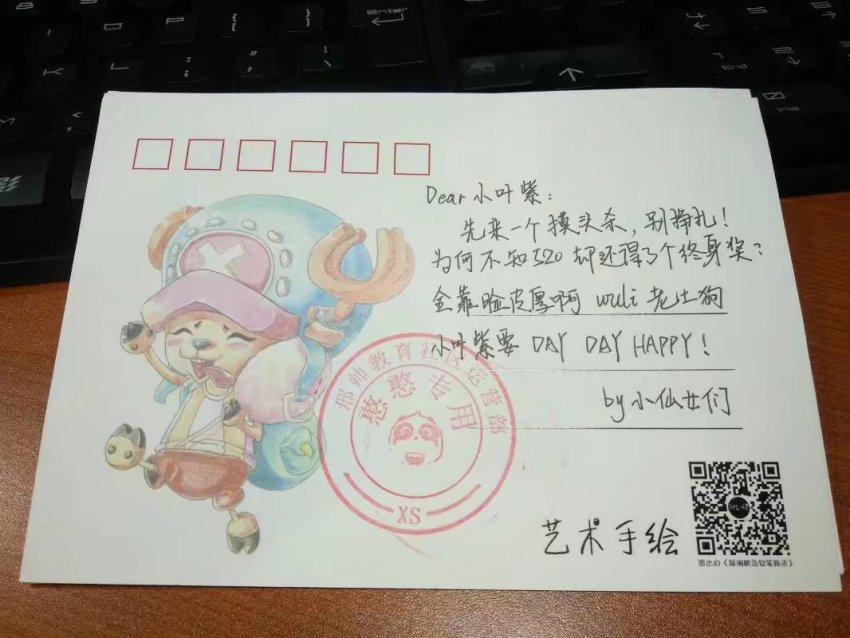 Dear 小叶紫：
先来一个摸头杀，别挣扎！
为何不知520却还得了个终身奖？
全靠脸皮厚啊 wuli 老比狗
小叶紫要 DAY DAY HAPPY！
by 小仙女们
邢师教育社区运营部
憨憨专用
XS
艺术手绘